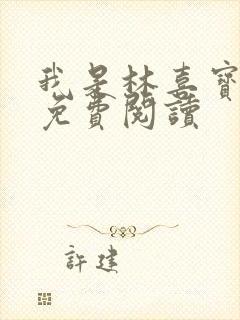 我是林喜寶
免費閱讀
許建